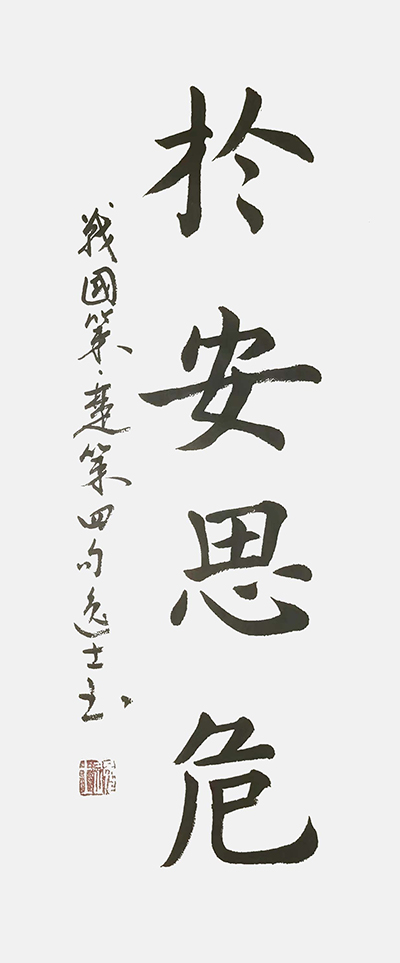 於安思危
戰國策·楚策四句逸士玉